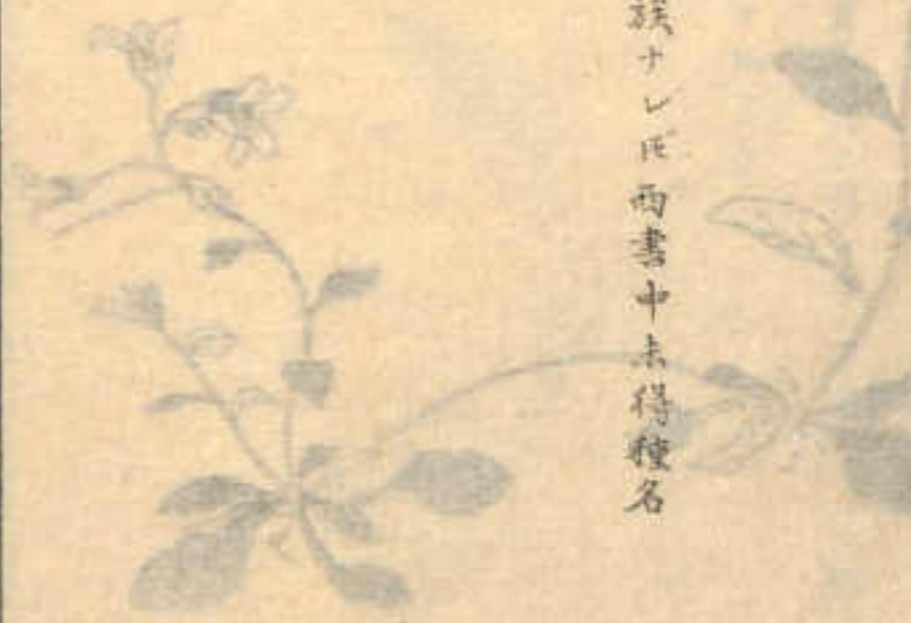 族ナレ𪜈西書中未得種名